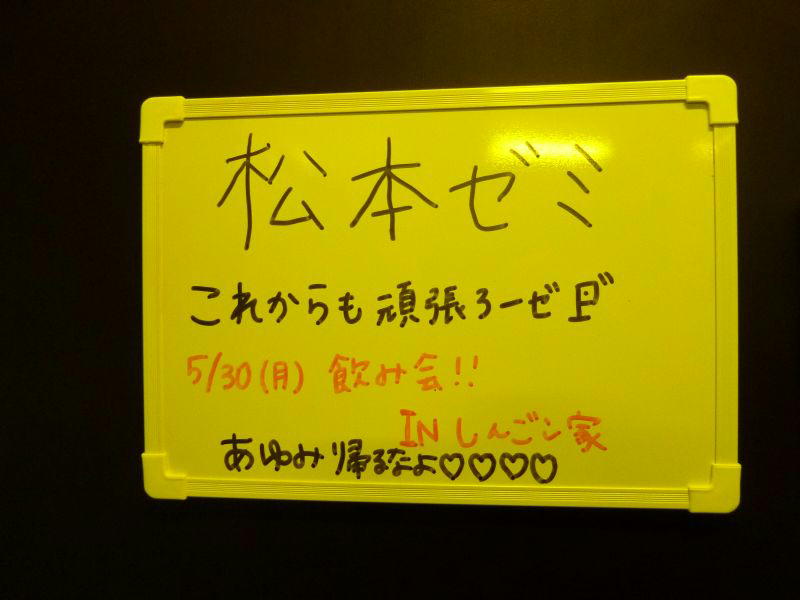 松本ゼミ
これからも頑張ろーぜ
5/30(月) 飲み会!!
INしんごン家
あゆみ帰るなよ♡♡♡♡